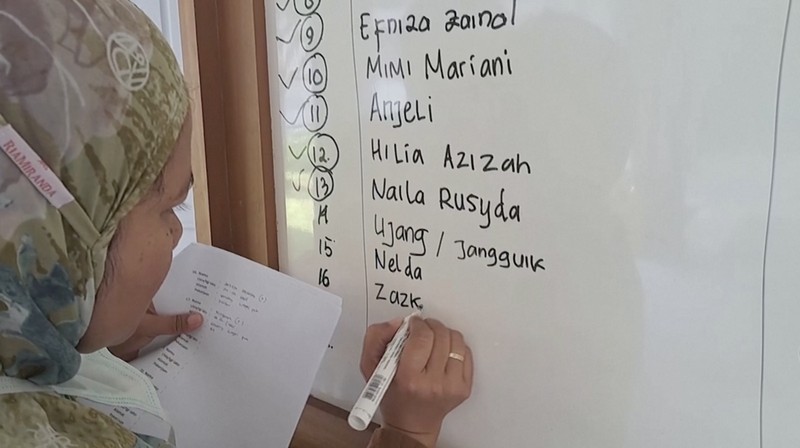 8
9 Efniza Zainal
10 Mimi Mariani
11 Anjeli
12. Hilia Azizah
13 Naila Rusyda
14 Ujang / Jangguik
15 Nelda
16 Zazk
RIAMIRANDA